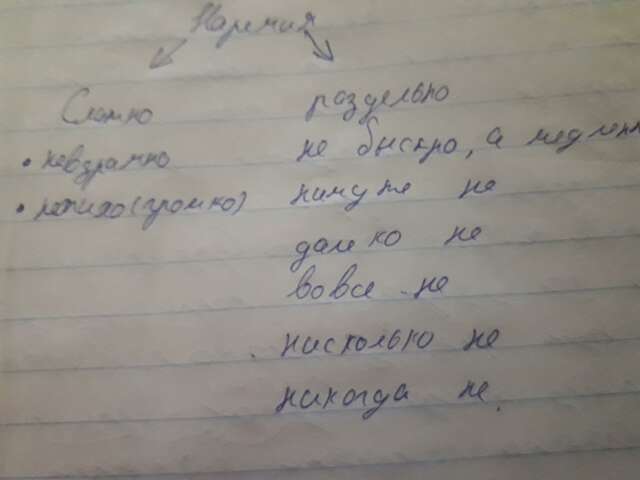 Наречия
Слитно раздельно
• невзрачно не быстро, а медленн
• нетихо (громко) ничуть не
далеко не
вовсе не
нисколько не
никогда не.